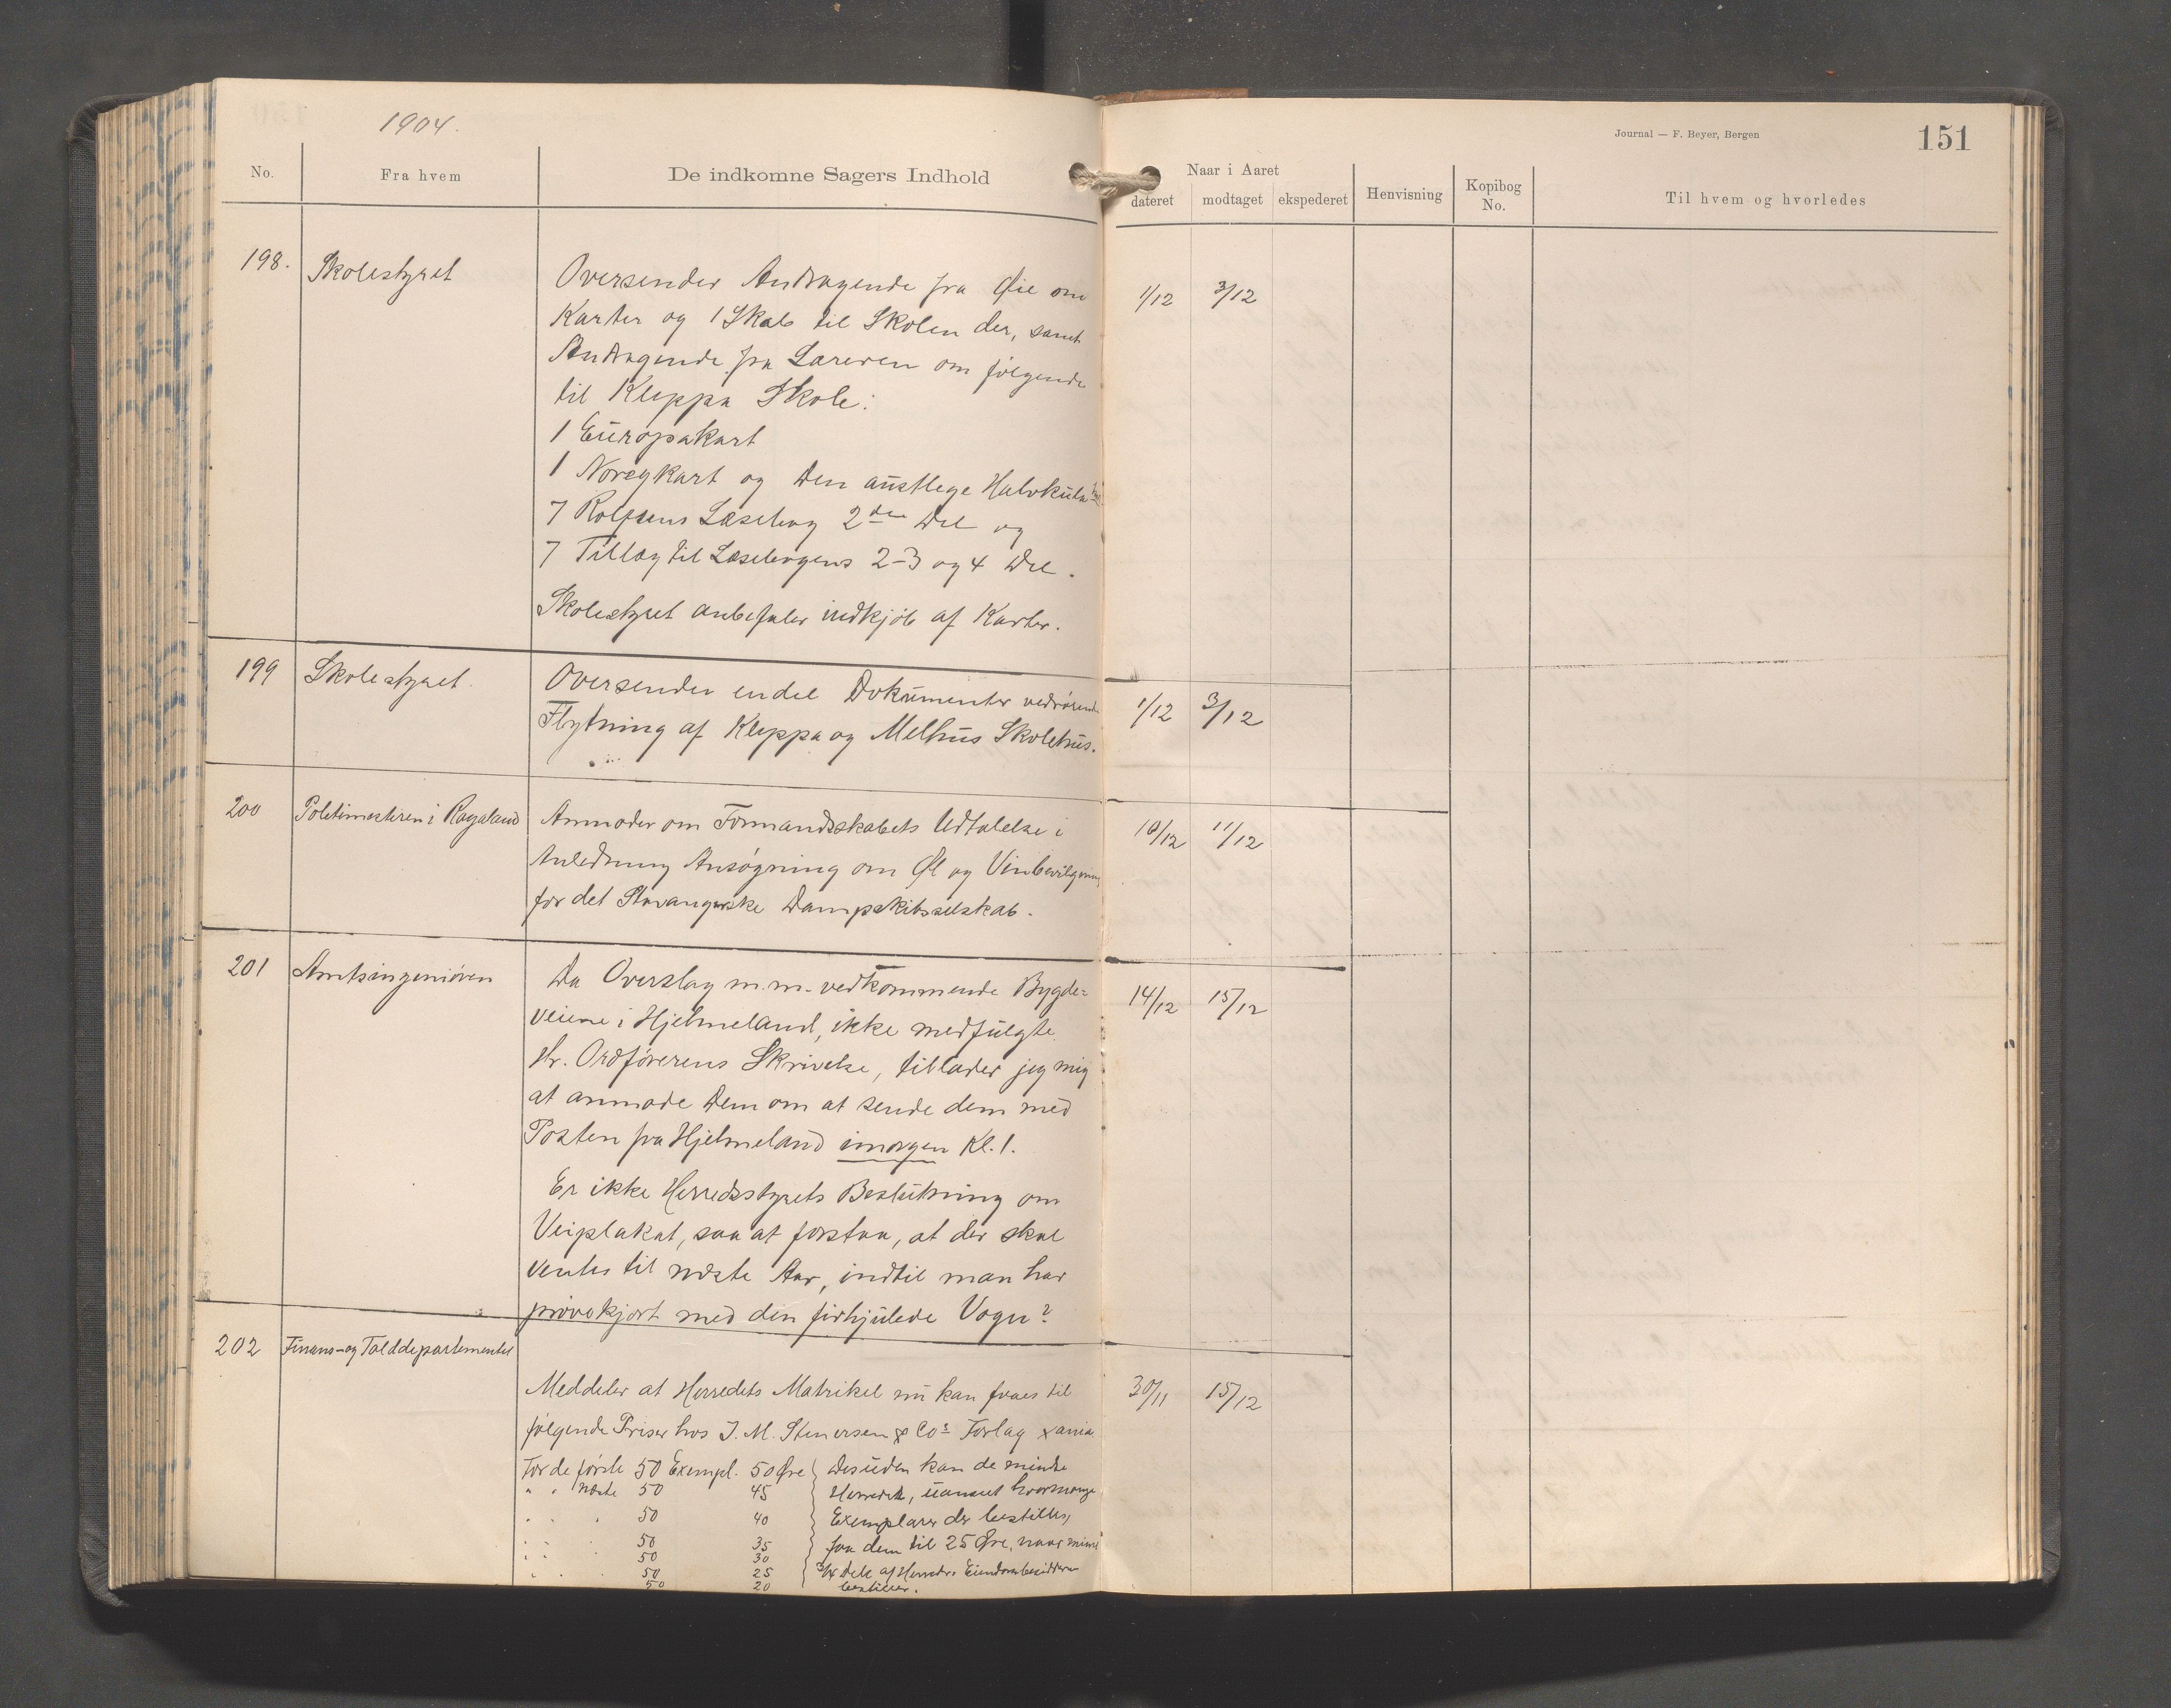 1904.
Journal — F. Beyer, Bergen
151
No.
Fra hvem
De indkomne Sagers Indhold
Naar i Aaret
dateret
modtaget
ekspederet
Henvisning
Kopibog No.
Til hvem og hvorledes
198. Skolestyret
Oversender Andragende fra Øie om 1/12 3/12
Karter og 1 Skab til Skolen der, samt
Andragende fra Læreren om følgende
til Kleppa Skole:
1 Europakart
1 Noregkart og Den austlege Halvkula
7 Rolfsens Læsebog 2den Del og
7 Tillæg til Læsebogens 2-3 og 4 Del.
Skolestyret anbefaler indkjøb af Karter.
199 Skolestyret.
Oversender endel Dokumenter vedrørende 1/12 3/12
Flytning af Kleppa og Melhus Skolehus.
200 Politimesteren i Rogaland
Anmoder om Formandsskabets Udtalelse i 10/12 11/12
Anledning Ansøgning om Øl og Vinbevilgning
for det Stavangerske Dampskibsselskab.
201 Amtsingeniøren
Da Overslag m.m. vedkommende Bygde= 14/12 15/12
veiene i Hjelmeland, ikke medfulgte
Hr. Ordførerens Skrivelse, tillader jeg mig
at anmode Dem om at sende dem med
Posten fra Hjelmeland imorgen Kl. 1.
Er ikke Herredsstyrets Beslutning om
Veiplakat, saa at forstaa, at der skal
ventes til næste Aar, indtil man har
prøvekjørt med den firhjulede Vogn?
202 Finans- og Tolddepartementet
Meddeler at Herredets Matrikel nu kan faaes til 30/11 15/12
følgende Priser hos J. M. Stenersen & Cos Forlag Xania
For de første 50 Exempl. 50 Øre Desuden kan de mindre
" " næste 50 45 Herreder, uanset hvormange
" " " 50 40 Exemplarer der bestilles,
" " " 50 35 faa dem til 25 Øre, naar
" " " 50 30
" " " 50 25 3/4 Dele af Herredets Eiendomsbesiddere
50 20 bestiller.